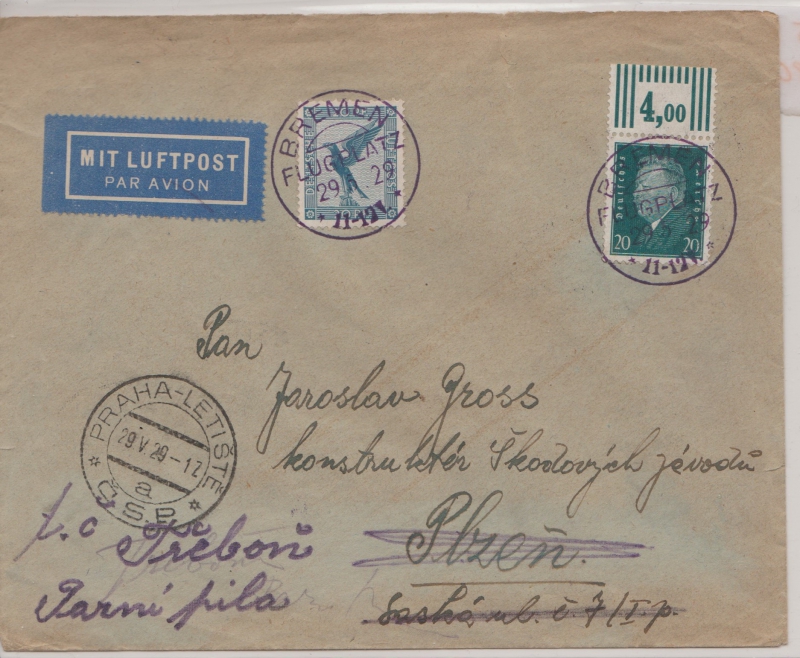 MIT LUFTPOST
PAR AVION
BREMEN
FLUGPLATZ
29 5. 29
* 11-12V *
4,00
BREMEN
FLUGPLATZ
29 5 29
* 11-12V *
Deutsches Reich
20 20
Pan
Jaroslav Gross
konstruktér Škodových závodů
Plzeň.
Saská ul. č. 7/I. p.
PRAHA-LETIŠTĚ
29 V 29-17
a
* ČSP *
t. č. Třeboň
Parní pila